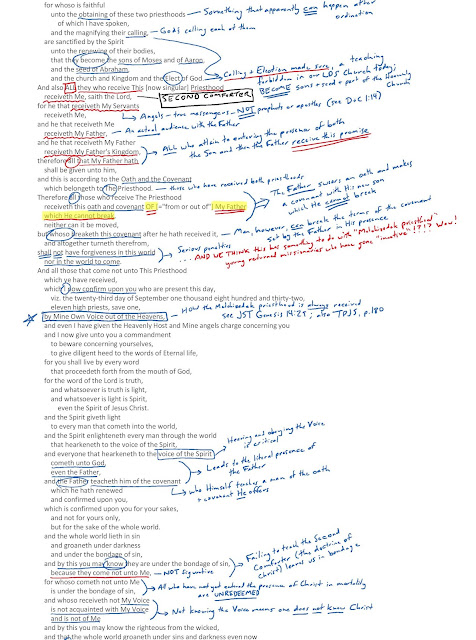 for whoso is faithful
unto the obtaining of these two priesthoods
Something that apparently can happen after
ordination
of which I have spoken,
and the magnifying their calling,
God's calling each of them
are sanctified by the Spirit
unto the renewing of their bodies,
that they become the sons of Moses and of Aaron,
and the seed of Abraham,
and the church and Kingdom and the Elect of God.
Calling & Election made sure, a teaching
forbidden in our LDS Church today;
BECOME sons + seed + part of the Heavenly
Church
And also ALL they who receive This [now singular] Priesthood
receiveth Me, saith the Lord,
SECOND COMFORTER
for he that receiveth My Servants
receiveth Me,
Angels - true messengers - NOT prophets or apostles (see D&C 1:14)
and he that receiveth Me
receiveth My Father,
An actual audience with the Father
and he that receiveth My Father
receiveth My Father's Kingdom,
ALL who attain to entering the presence of both
the Son and then the Father receive this promise
therefore all that My Father hath
shall be given unto him,
and this is according to the Oath and the Covenant
which belongeth to The Priesthood.
those who have received both priesthoods
Therefore all those who receive The Priesthood
receiveth this oath and covenant OF [="from or out of"] My Father
which He cannot break,
The Father swears an oath and makes
a covenant with His new son
which He cannot break
neither can it be moved,
but whoso breaketh this covenant after he hath received it,
Man, however, can break the terms of the covenant
set by the Father in His presence
and altogether turneth therefrom,
shall not have forgiveness in this world
nor in the world to come.
Serious penalties
... AND WE THINK this has something to do with "Melchizedek priesthood"
young returned missionaries who have gone "inactive"!?!? Wow!
And all those that come not unto This Priesthood
which ye have received,
which I now confirm upon you who are present this day,
viz. the twenty-third day of September one thousand eight hundred and thirty-two,
eleven high priests, save one,
by Mine Own Voice out of the Heavens,
How the Melchizedek priesthood is always received
see JST Genesis 14:29; also TPJS, p.180
and even I have given the Heavenly Host and Mine angels charge concerning you
and I now give unto you a commandment
to beware concerning yourselves,
to give diligent heed to the words of Eternal life,
for you shall live by every word
that proceedeth forth from the mouth of God,
for the word of the Lord is truth,
and whatsoever is truth is light,
and whatsoever is light is Spirit,
even the Spirit of Jesus Christ.
and the Spirit giveth light
to every man that cometh into the world,
and the Spirit enlighteneth every man through the world
that hearkeneth to the voice of the Spirit,
and everyone that hearkeneth to the voice of the Spirit,
Hearing and obeying the Voice
is critical
cometh unto God,
even the Father,
Leads to the literal presence of
the Father
and the Father teacheth him of the covenant
which he hath renewed
who Himself teaches a man of the oath
+ covenant He offers
and confirmed upon you,
which is confirmed upon you for your sakes,
and not for yours only,
but for the sake of the whole world.
and the whole world lieth in sin
and groaneth under darkness
and under the bondage of sin,
and by this you may know they are under the bondage of sin,
because they come not unto Me,
NOT figurative
Failing to teach the Second
Comforter (the doctrine of
Christ) leaves us in bondage
for whoso cometh not unto Me
is under the bondage of sin,
All who have not yet entered the presence of Christ in mortality
are UNREDEEMED
and whoso receiveth not My Voice
is not acquainted with My Voice
and is not of Me
Not knowing the Voice means one does not know Christ
and by this you may know the righteous from the wicked,
and that the whole world groaneth under sins and darkness even now